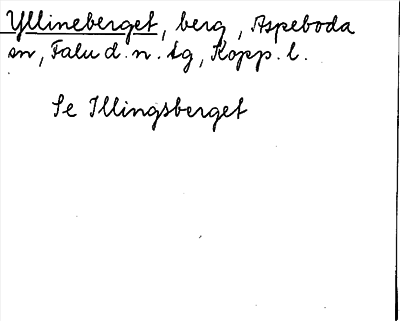 Yllineberget, berg, Aspeboda
sn, Falu d. n. tg, Kopp. l.
Se Illingsberget